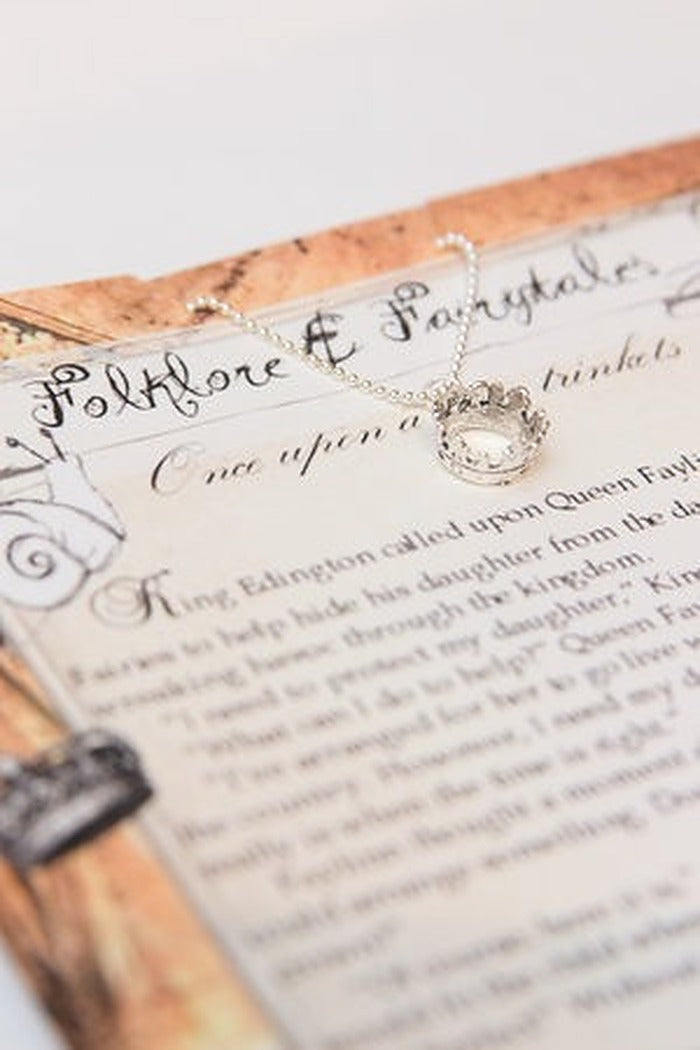 Folklore & Fairytales
Once upon a trinkets
King Edington called upon Queen Fayl
Fairies to help hide his daughter from the da
wreaking havoc through the kingdom.
"I need to protect my daughter," Kin
"What can I do to help?" Queen Fay
"I've arranged for her to go live
the country. However, I need my d
really is when the time is right."
Faylinn thought a moment
could arrange something. Do
"Of course, here it is,"